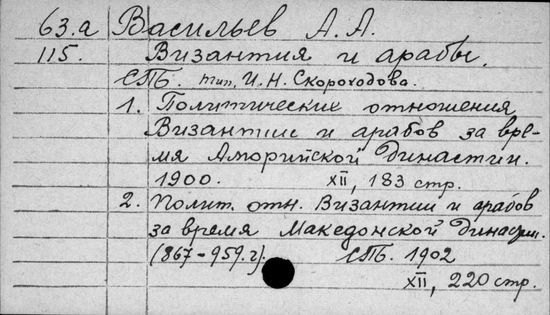 63.а Васильев А. А.
115. Византия и арабы.
СПБ. тип. И. Н. Скороходова.
1. Политические отношения
Византии и арабов за вре-
мя Аморийской династии.
1900. XII, 183 стр.
2. Полит. отн. Византии и арабов
за время Македонской династии.
(867-959 г.). СПБ. 1902
XII, 220 стр.